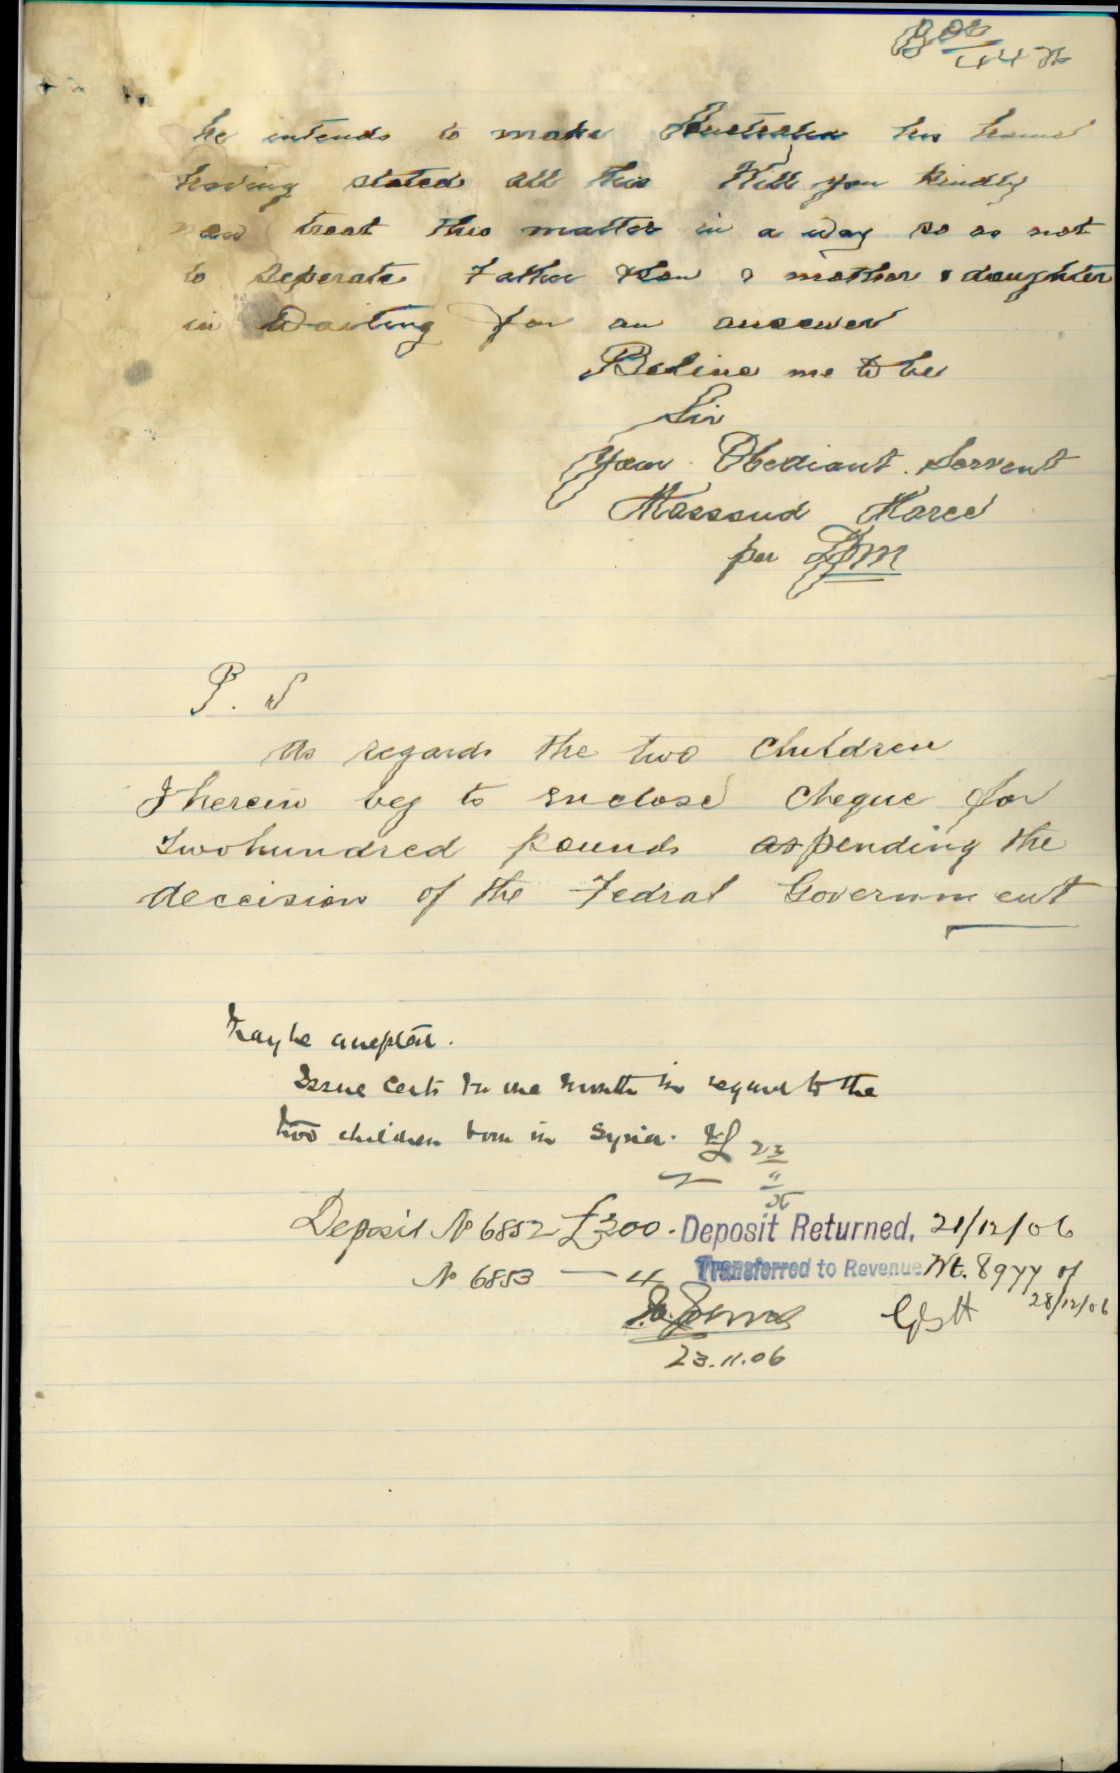 he intends to make Australia his home
having stated all this Will you kindly
treat this matter in a way so as not
to seperate Father & son & mother & daughter
in Waiting for an answer
Belive me to be
Sir
Your Obediant Servent
Massoud Maree
per
P. S
As regards the two children
I herein beg to enclose cheque for
twohundred pounds as pending the
deccision of the Fedral Government
May be accepted.
Issue certs for one month in regard to the
two children born in Syria.
23
11
06
Deposit No 6852 £200. Deposit Returned, 21/12/06
No 6853 — " Transferred to Revenue Wt. 8977 of
28/12/06
23.11.06